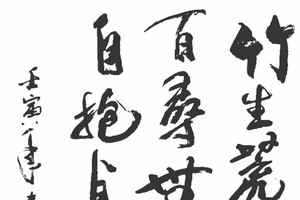 竹生荒
百尋世
自抱貞
壬寅